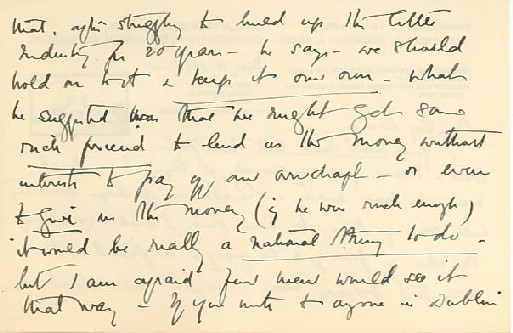 that, after struggling to build up this little
industry for 20 years – he says – we should
hold on to it & keep it our own – what
he suggested was that we might get some
rich friend to lend us the money without
interest to pay off our overdraft – or even
to give us the money (if he were rich enough)
it would be really a national thing to do –
but I am afraid few men would see it
that way – If you write to anyone in Dublin